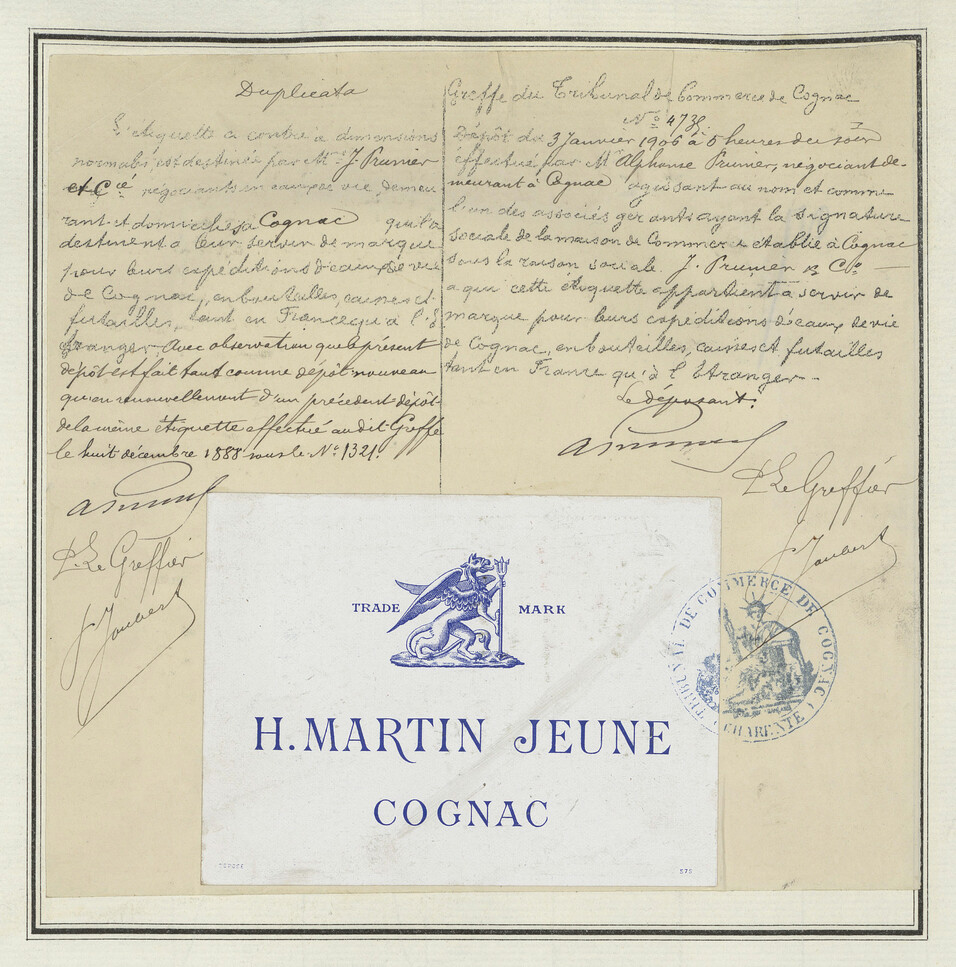 Duplicata
L'étiquette ci contre à dimensions
normales est destinée par Mrs J. Prunier
et Cie négociants en eaux de vie demeu
rant et domiciliés à Cognac qui la
destinent à leur servir de marque
pour leurs expéditions d'eaux de vie
de Cognac, en bouteilles, caisses et
futailles, tant en France qu'à l'é
tranger, avec observation que le présent
dépôt est fait tant comme dépôt nouveau
qu'en renouvellement d'un précédent dépôt
de la même étiquette effectué au dit Greffe
le huit décembre 1888 sous le No 1321.
P. Le Greffier
J. Joubert
Greffe du Tribunal de Commerce de Cognac
No 4735
Dépôt du 3 Janvier 1906 à 5 heures du soir
effectué par Mr Alphonse Prunier, négociant de-
meurant à Cognac agissant au nom et comme
l'un des associés gérants ayant la signature
sociale de la maison de Commerce établie à Cognac
sous la raison sociale J. Prunier & Cie —
a qui cette étiquette appartient à servir de
marque pour leurs expéditions d'eaux de vie
de Cognac, en bouteilles, caisses et futailles
tant en France qu'à l'étranger -
Le déposant:
P. Le Greffier
J. Joubert
TRIBUNAL DE COMMERCE DE COGNAC
(CHARENTE)
TRADE MARK
H. MARTIN JEUNE
COGNAC
573